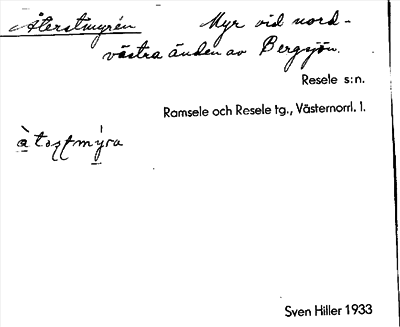 Återstmyrén Myr vid nord-
västra änden av Bergsjön.
Resele s:n.
Ramsele och Resele tg., Västernorrl. l.
Sven Hiller 1933